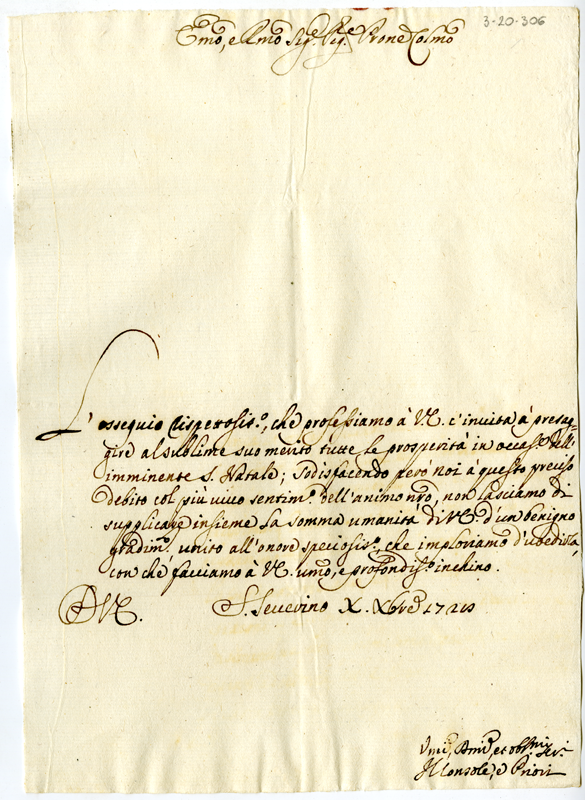 3-20-306
Emo, e Rmo Sig.r Sig.r Prone Colmo
L'ossequio rispettosis.o, che professiamo à V.E. c'invita à presag-
gire al sublime suo merito tutte le prosperità in occas.e dell'
imminente S. Natale; Sodisfacendo però noi a questo preciso
debito col più vivo sentim.o dell'animo nro, non lasciamo di
supplicare insieme la somma umanità di V.E. d'un benigno
gradim.o unito all'onore speciosis.o, che imploriamo d'ubedirla,
con che facciamo à V.E. umo, e profondis.o inchino.
D V.E. S. Severino X. Xbre
Umi, Dmi, et obl.mi Ser.i
Il Console, e Priori